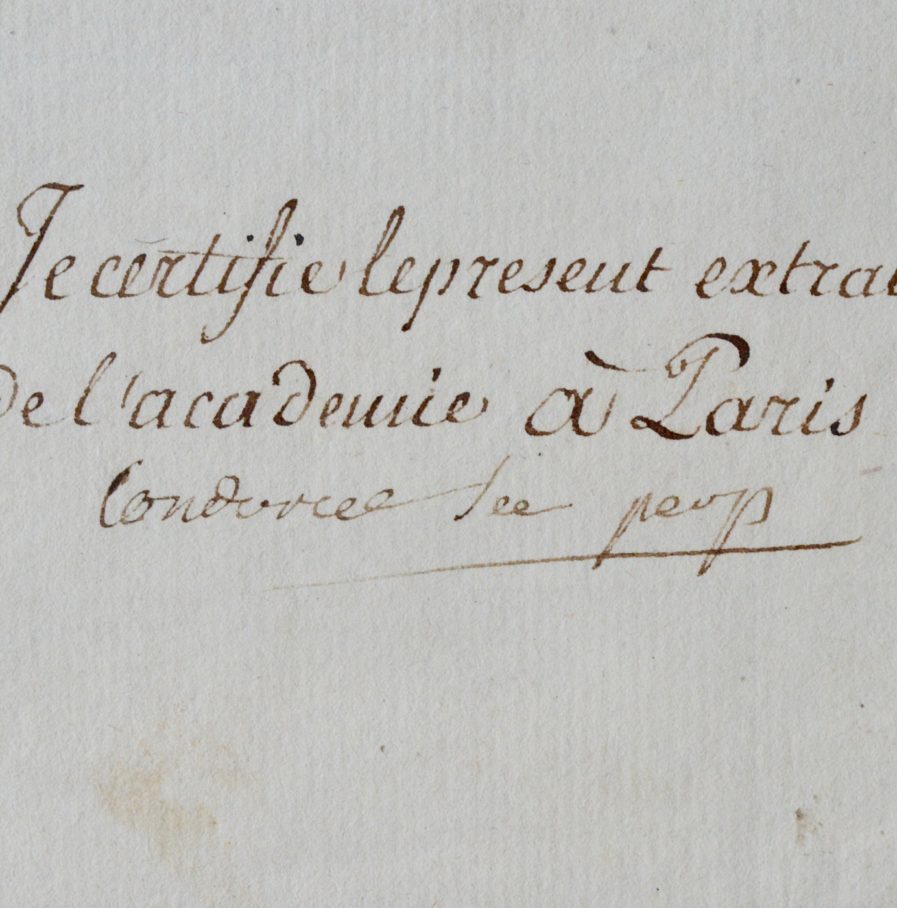 Je certifie le present extrai
de l'academie à Paris
Condorcet Sec perp